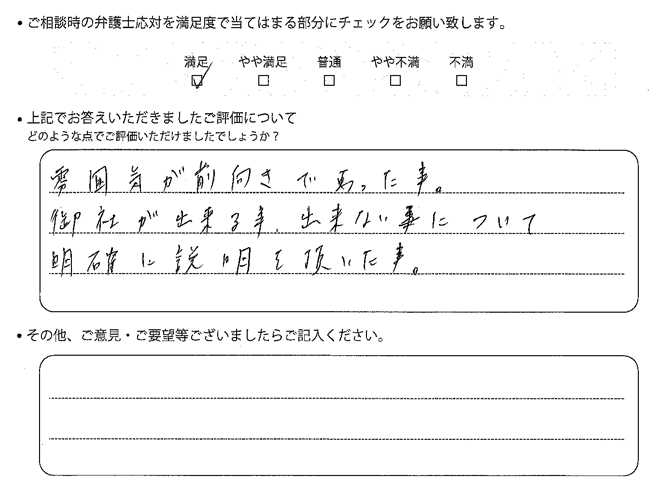 ・ご相談時の弁護士応対を満足度で当てはまる部分にチェックをお願い致します。
満足 やや満足 普通 やや不満 不満
・上記でお答えいただきましたご評価について
どのような点でご評価いただけましたでしょうか?
雰囲気が前向きであった事。
御社が出来る事、出来ない事について
明確に説明を頂いた事。
・その他、ご意見・ご要望等ございましたらご記入ください。